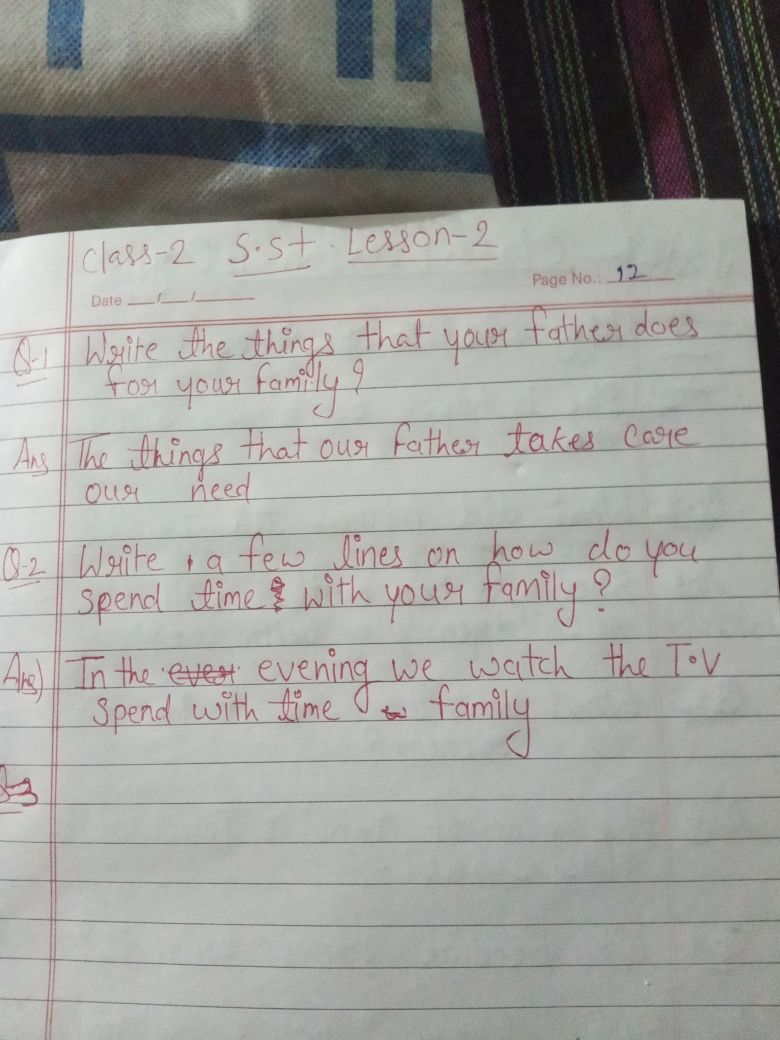 Class-2 S.St. Lesson-2
Page No.: 12
Date __/__/____
Q-1 Write the things that your father does
for your family?
Ans The things that our father takes care
our need
Q-2 Write a few lines on how do you
spend time with your family?
Ans) In the evening we watch the T.V
spend with time family
Q-3